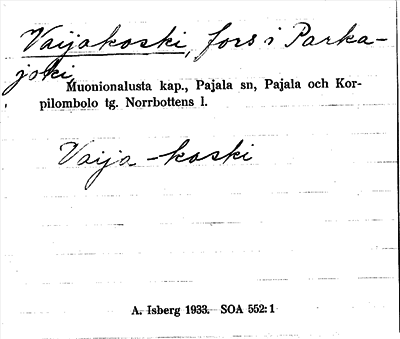 Vaijakoski, fors i Parka-
joki,
Muonionalusta kap., Pajala sn, Pajala och Kor-
pilombolo tg. Norrbottens l.
Vaija-koski
A. Isberg 1933. SOA 552:1